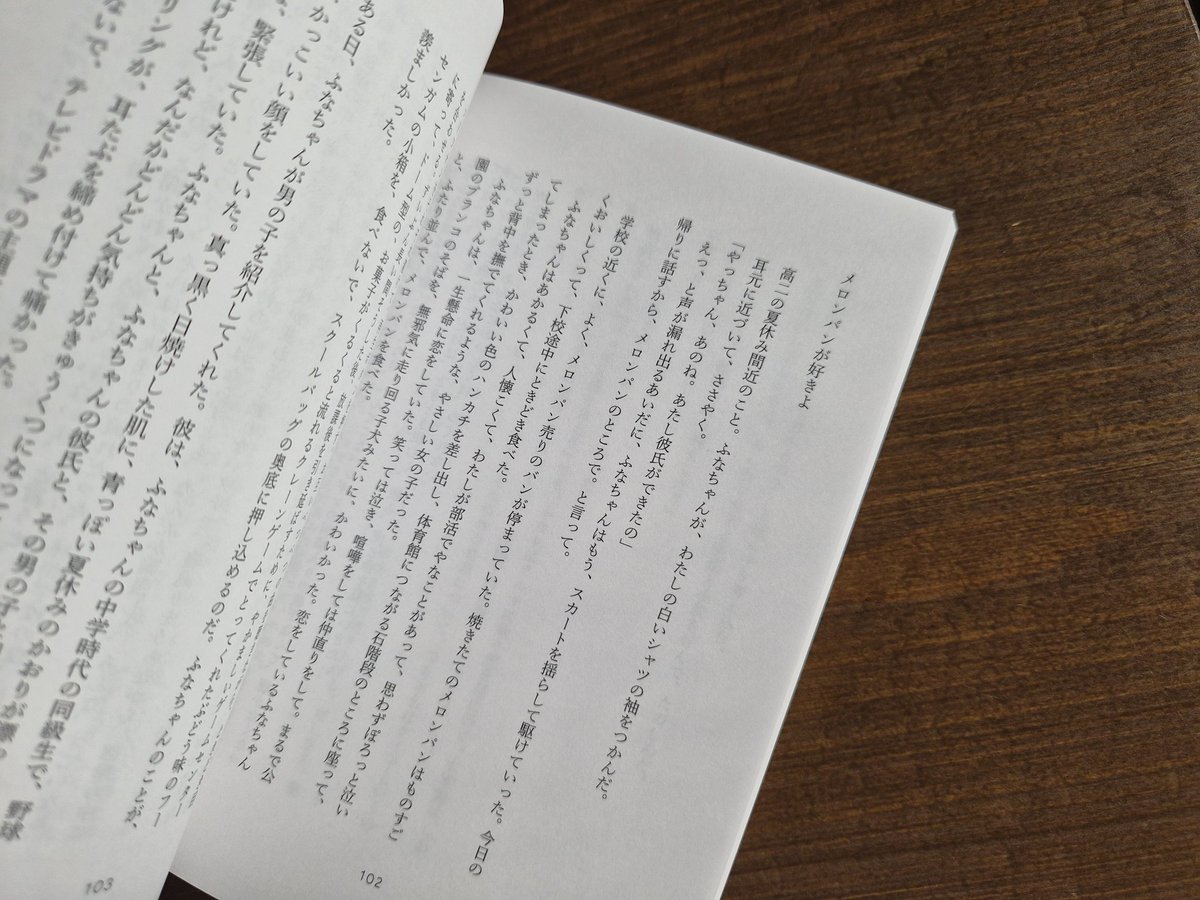 メロンパンが好きよ
高二の夏休み間近のこと。ふなちゃんが、わたしの白いシャツの袖をつかんだ。
耳元に近づいて、ささやく。
「やっちゃん、あのね。あたし彼氏ができたの」
えっ、と声が漏れ出るあいだに、ふなちゃんはもう、スカートを揺らして駆けていった。今日の
帰りに話すから、メロンパンのところで。と言って。
学校の近くに、よく、メロンパン売りのバンが停まっていた。焼きたてのメロンパンはものすご
くおいしくって、下校途中にときどき食べた。
ふなちゃんはあかるくて、人懐こくて、わたしが部活でやなことがあって、思わずぽろっと泣い
てしまったとき、かわいい色のハンカチを差し出し、体育館につながる石階段のところに座って、
ずっと背中を撫でてくれるような、やさしい女の子だった。
ふなちゃんは、一生懸命に恋をしていた。笑っては泣き、喧嘩をしては仲直りをして。まるで公
園のブランコのそばを、無邪気に走り回る子犬みたいに、かわいかった。恋をしているふなちゃん
と、ふたり並んで、メロンパンを食べた。
ドーム型の
お菓子がくるくると流れるクレーンゲームでとってくれたぶどう味のフー
センガムの小箱を、食べないで、スクールバッグの奥底に押し込めるのだ。ふなちゃんのことが、
羨ましかった。
ある日、ふなちゃんが男の子を紹介してくれた。彼は、ふなちゃんの中学時代の同級生で、野球
かっこいい顔をしていた。真っ黒く日焼けした肌に、青っぽい夏休みのかおりが漂っ
緊張していた。ふなちゃんと、ふなちゃんの彼氏と、その男の子
けれど、なんだかどんどん気持ちがきゅうくつになって
リングが、耳たぶを締め付けて痛かった。
ないで、テレビドラマの主
102
103